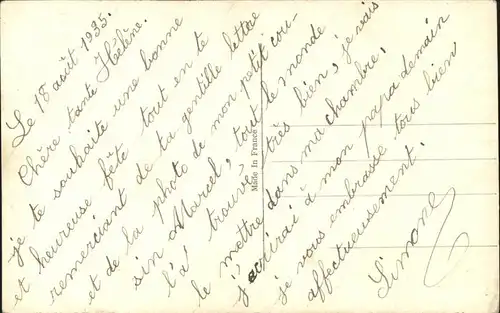 Le 18 août 1935.
Chère tante Hélène.
je te souhaite une bonne
et heureuse fête tout en te
remerciant de ta gentille lettre
et de la photo de mon petit cou-
sin Marcel; tout le monde
l'a trouvé très bien, je vais
le mettre dans ma chambre.
j'écrirai à mon papa demain
je vous embrasse tous bien
affectueusement.
Simone
Made In France